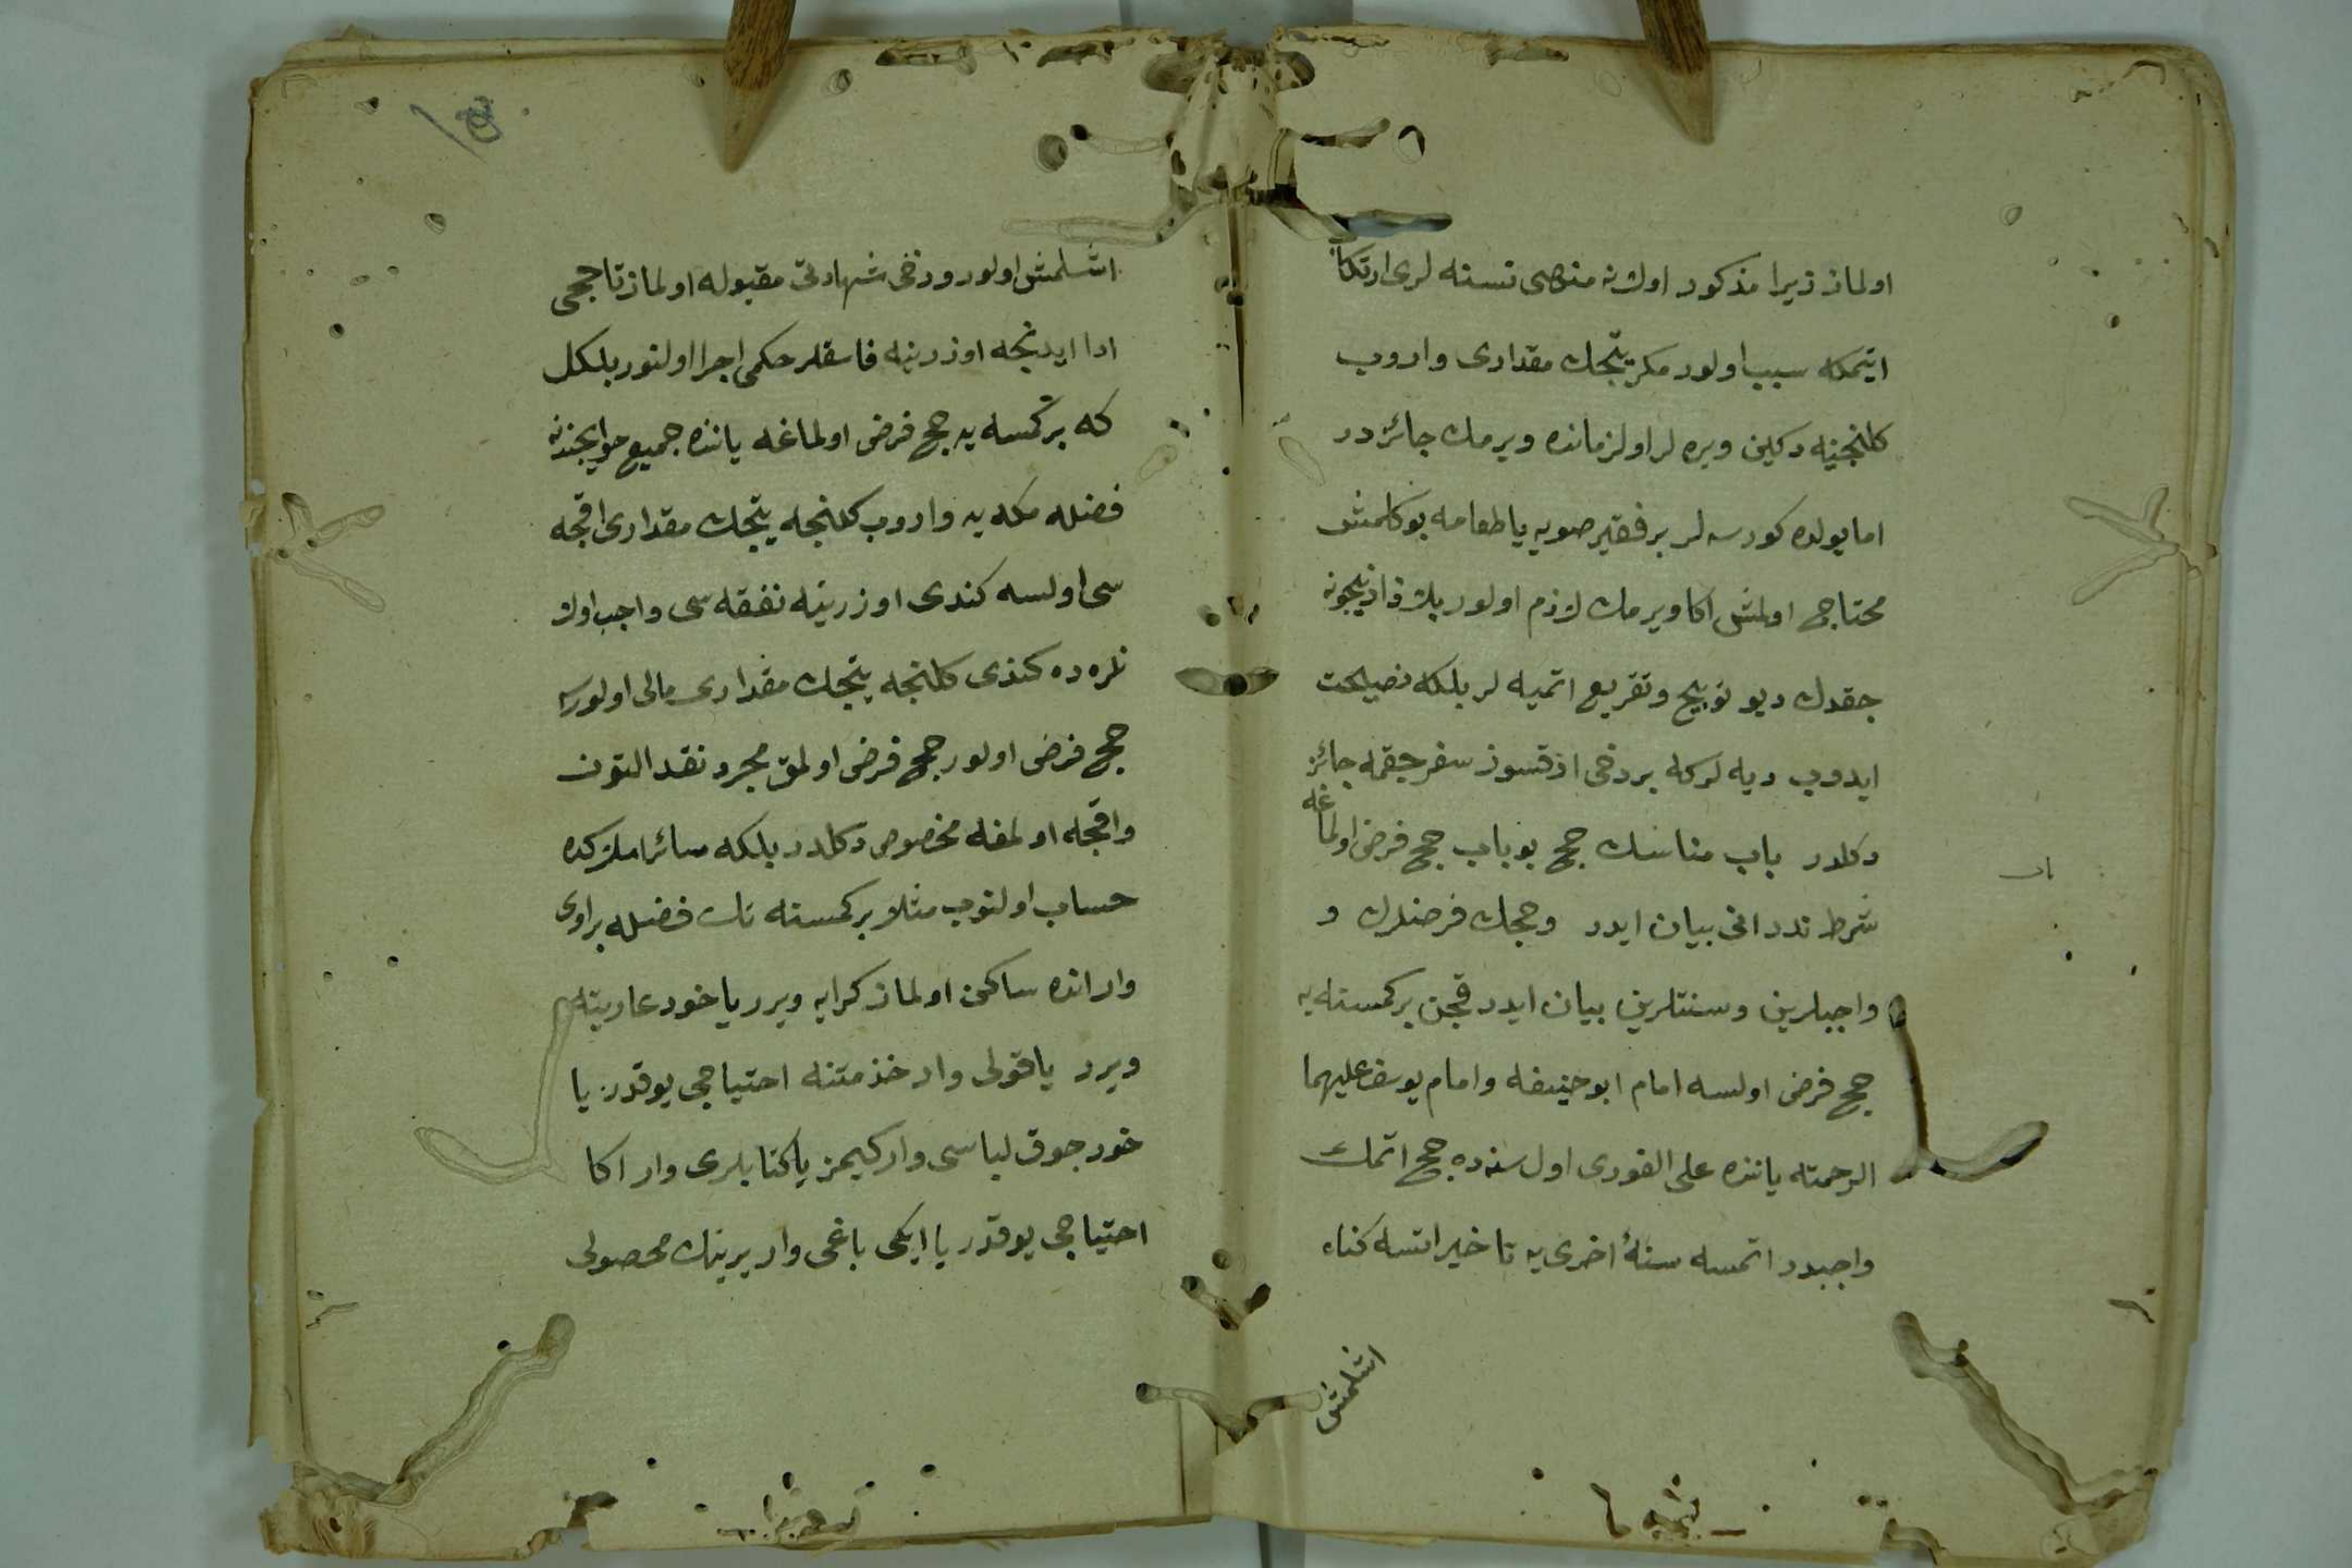 اولماز زیرا مذکور اولان منهى نسنه لرى ارتکاب
ایتمکه سبب اولور مکر یتجك مقدارى واروب
کلنجیه دکین ویره لر اولزمانده ویرمك جائزدر
اما یولده کورسه لر بر فقیر صویه یا طعامه بوکلمش
محتاج اولمش اکا ویرمك لازم اولور بلا زاد نیجون
جقدك دیو توبیخ وتقریع اتمیه لر بلکه نصیحت
ایدوب دیه لرکه بر دخى ازقسوز سفر جقمه جائز
دکلدر باب مناسك حج بو باب حج فرض اولماغه
شرط ندر انى بیان ایدر وحجك فرضلرن و
واجبلرین وسنتلرین بیان ایدر قچن بر کمسنه یه
حج فرض اولسه امام ابو حنیفه وامام یوسف علیهما
الرحمته یاننده على الفورى اول سنه ده حج اتمك
واجبدر اتمسه سنهٔ اخرى یه تاخیر اتسه کناه
اشلمش
اشلمش اولور ودخى شهادتى مقبوله اولماز تا حجى
ادا ایدنجه اوزرینه فاسقلر حکمى اجرا اولنور بلکل
که بر کمسه یه حج فرض اولماغه یاننده جمیع حوایجندن
فضله مکه یه واروب کلنجه یتجك مقدارى اقجه
سى اولسه کندى اوزرینه نفقه سى واجب اولان
لره ده کندى کلنجه یتجك مقدارى مالى اولورسه
حج فرض اولور حج فرض اولمق مجرد نقد التون
واقجه اولمغه مخصوص دکلدر بلکه سائر املاکده
حساب اولنوب مثلا بر کمسنه نك فضله بر اوى
وار انده ساکن اولماز کرایه ویرر یا خود عاریته
ویرر یا قولى وار خذمتنه احتیاجى یوقدر یا
خود جوق لباسى وار کیمز یا کتابلرى وار اکا
احتیاجى یوقدر یا ایکى باغى وار برینك محصولى